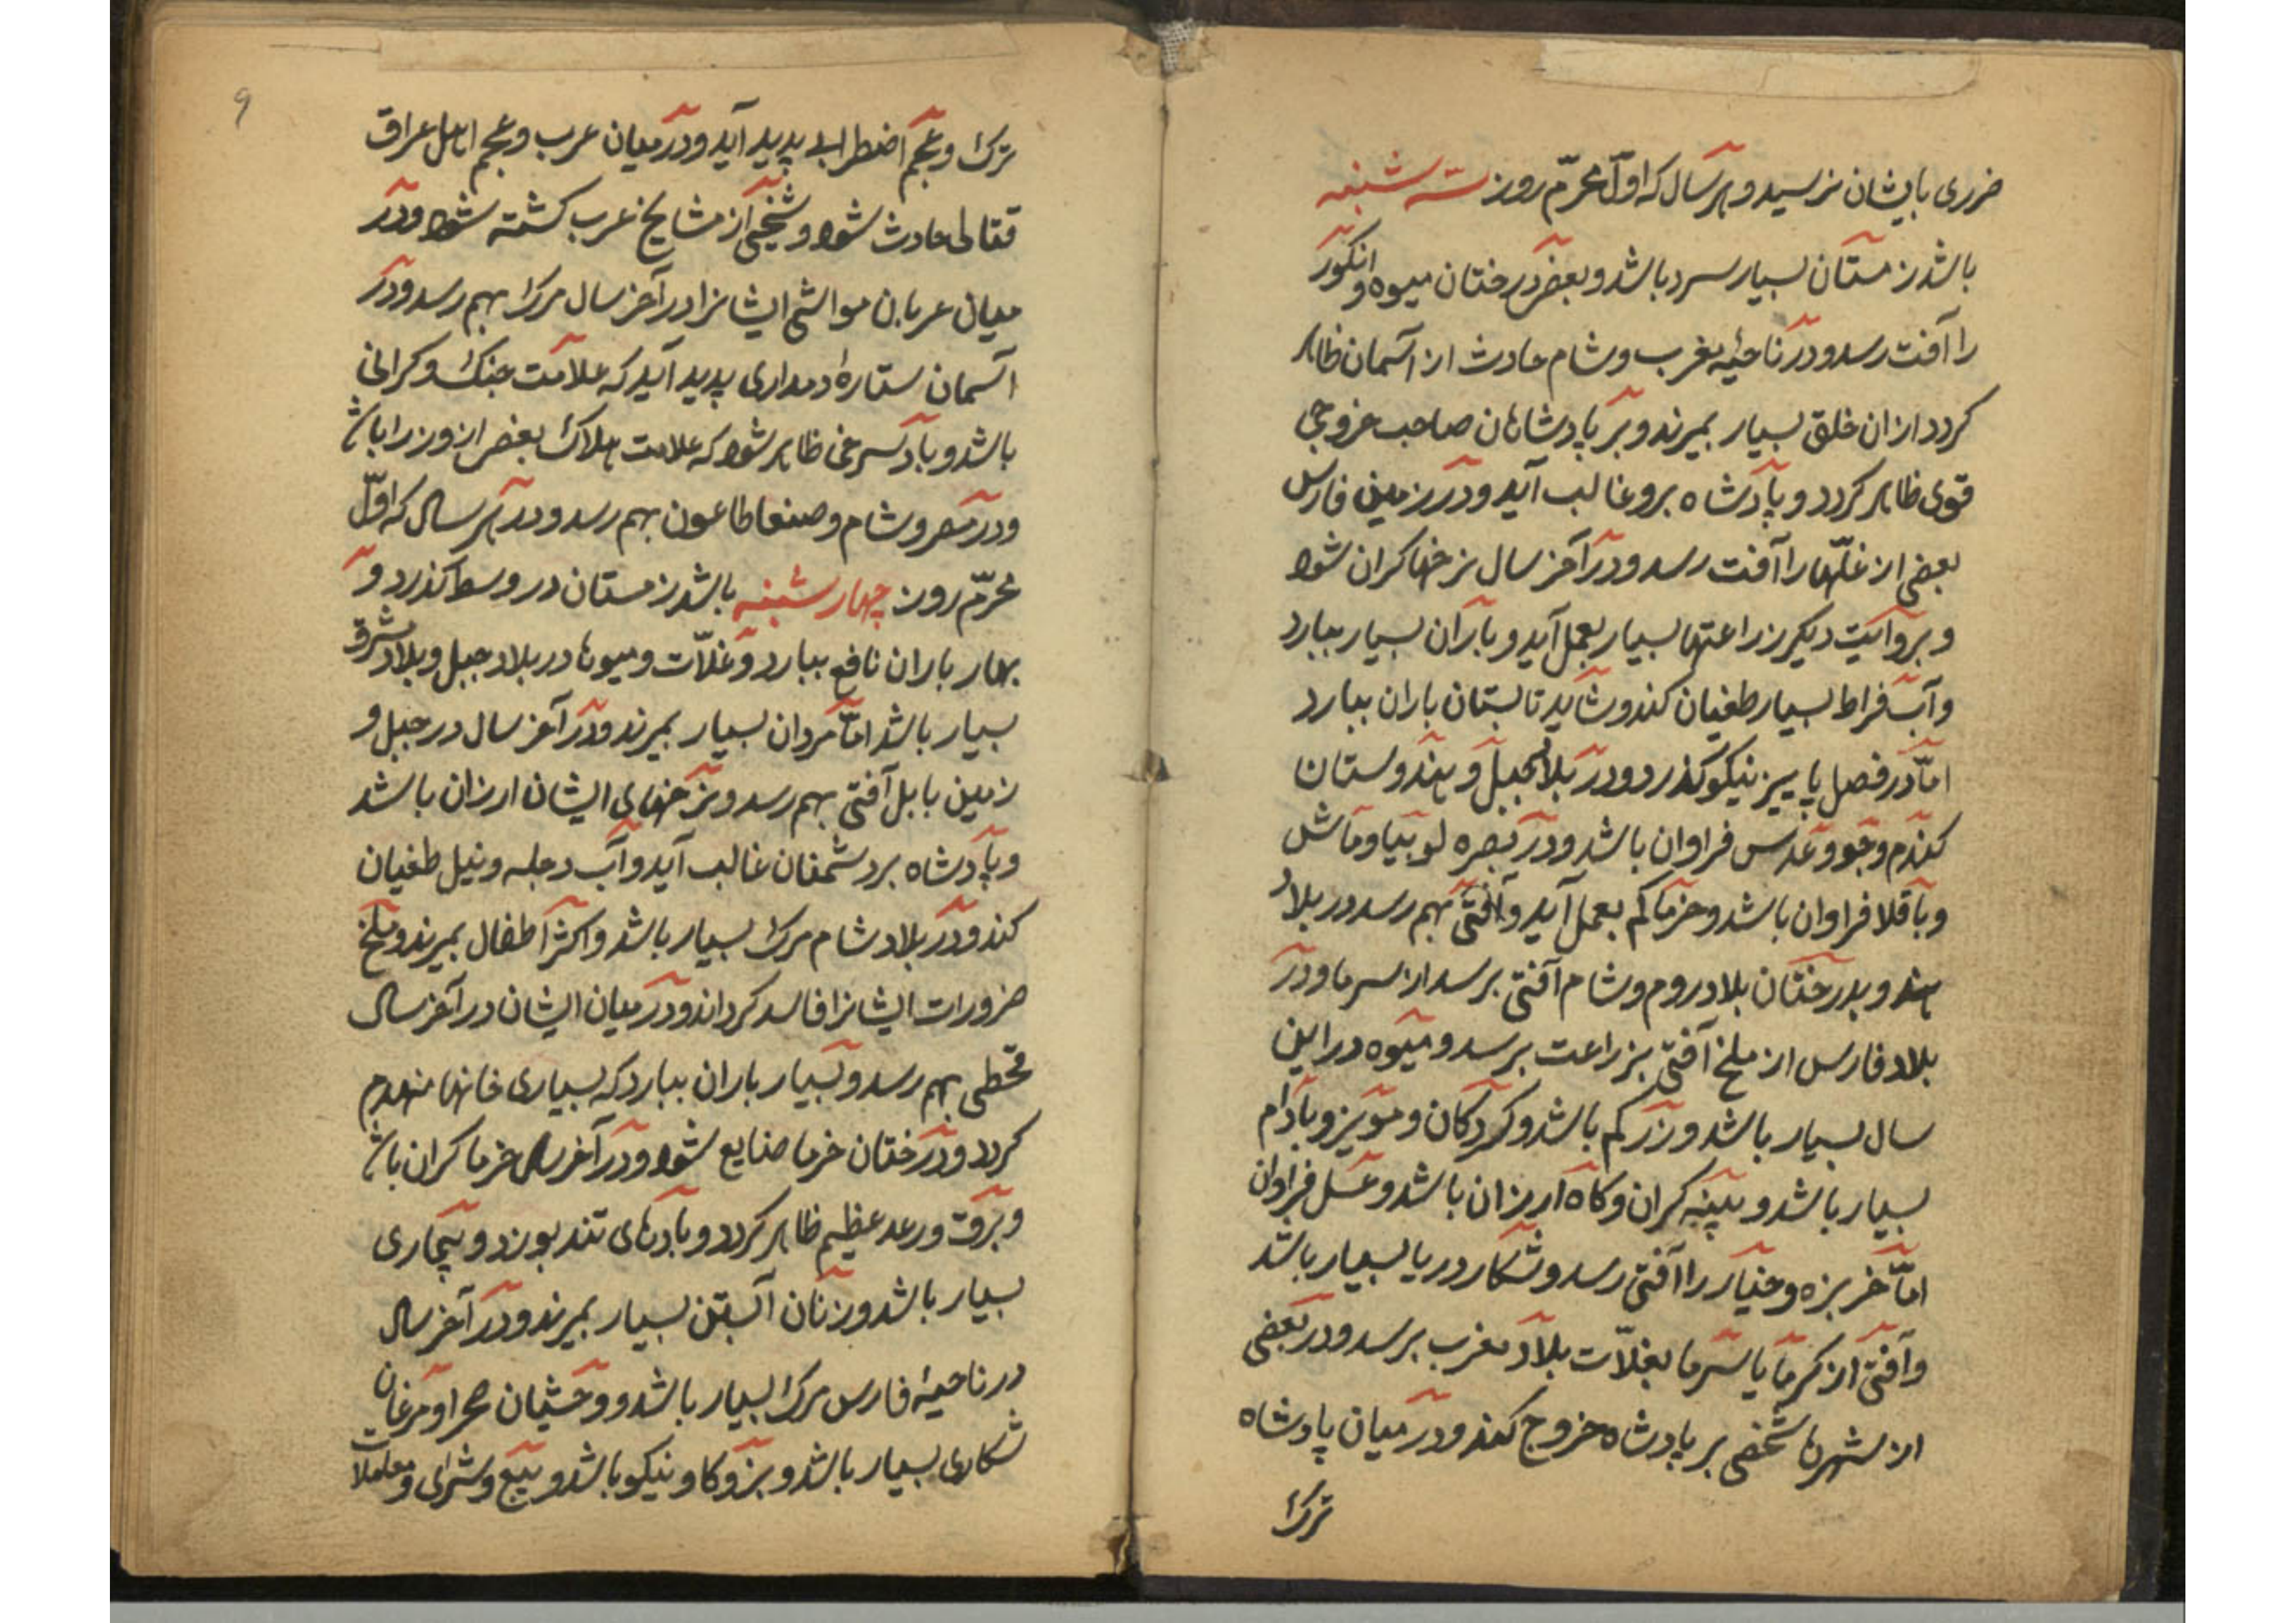 ضرری بایشان نرسید و هر سال که اوّل محرّم روز سه شنبه
باشد زمستان بسیار سرد باشد و بعضی درختان میوه و انکور
را آفت رسد و در ناحیهٔ مغرب و شام حادث از آسمان ظاهر
کردد از ان خلق بسیار بمیرند و بر پادشاهان صاحب خروجی
قوی ظاهر کردد و پادشاه برو غالب آید و در زمین فارس
بعضی از غلّهها را آفت رسد و در آخر سال نرخها کران شود
و بروایت دیکر زراعتها بسیار بعمل آید و باران بسیار ببارد
و آب فراط بسیار طغیان کند و شاید تابستان باران ببارد
امّا در فصل پاییز نیکو کذرد و در بلاد جبل و هندوستان
کندم و جو و عدس فراوان باشد و در بصره لوبیا و ماش
و باقلا فراوان باشد و خرما کم بعمل آید و آفتی بهم رسد در بلاد
هند و بدرختان بلاد روم و شام آفتی برسد از سرما و در
بلاد فارس از ملخ آفتی بزراعت برسد و میوه در این
سال بسیار باشد و زر کم باشد و کردکان و مویز و بادام
بسیار باشد و پنبه کران و کاه ارزان باشد و عسل فراوان
امّا خربزه و خیار را آفتی رسد و شکار دریا بسیار باشد
و آفتی از کرما یا سرما بغلّات بلاد مغرب برسد و در بعضی
از شهرها شخصی بر پادشاه خروج کند و در میان پادشاه
ترک
۹
ترک و عجم اضطرابی پدید آید و در میان عرب و عجم اهل عراق
قتالی حادث شود و شیخی از مشایخ عرب کشته شود و در
میان عربان مواشی ایشانرا در آخر سال مرک بهم رسد و در
آسمان ستارهٔ دمداری پدید آید که علامت جنک و کرانی
باشد و باد سرخی ظاهر شود که علامت هلاک بعضی از وزرا باش
و در مصر و شام و صنعا طاعون بهم رسد و در هر سال که اوّل
محرّم روز چهار شنبه باشد زمستان در وسط کذرد و
بهار باران نافع ببارد و غلّات و میوها در بلاد جبل و بلاد مشرق
بسیار باشد امّا مردان بسیار بمیرند و در آخر سال در جبل و
زمین بابل آفتی بهم رسد و نرخهای ایشان ارزان باشد
و پادشاه بر دشمنان غالب آید و آب دجله و نیل طغیان
کند و در بلاد شام مرک بسیار باشد و اکثر اطفال بمیرند و ملخ
ضرورات ایشانرا فاسد کرداند و در میان ایشان در آخر سال
قحطی بهم رسد و بسیار باران ببارد که بسیاری خانها منهدم
کردد و درختان خرما ضایع شود و در آخر سال خرما کران باش
و برق و رعد عظیم ظاهر کردد و بادهای تند بوزد و بیماری
بسیار باشد و زنان آبستن بسیار بمیرند و در آخر سال
در ناحیهٔ فارس مرک بسیار باشد و وحشیان صحرا و مرغان
شکاری بسیار باشد و بز و کاو نیکو باشد و بیع و شرای و معاملات